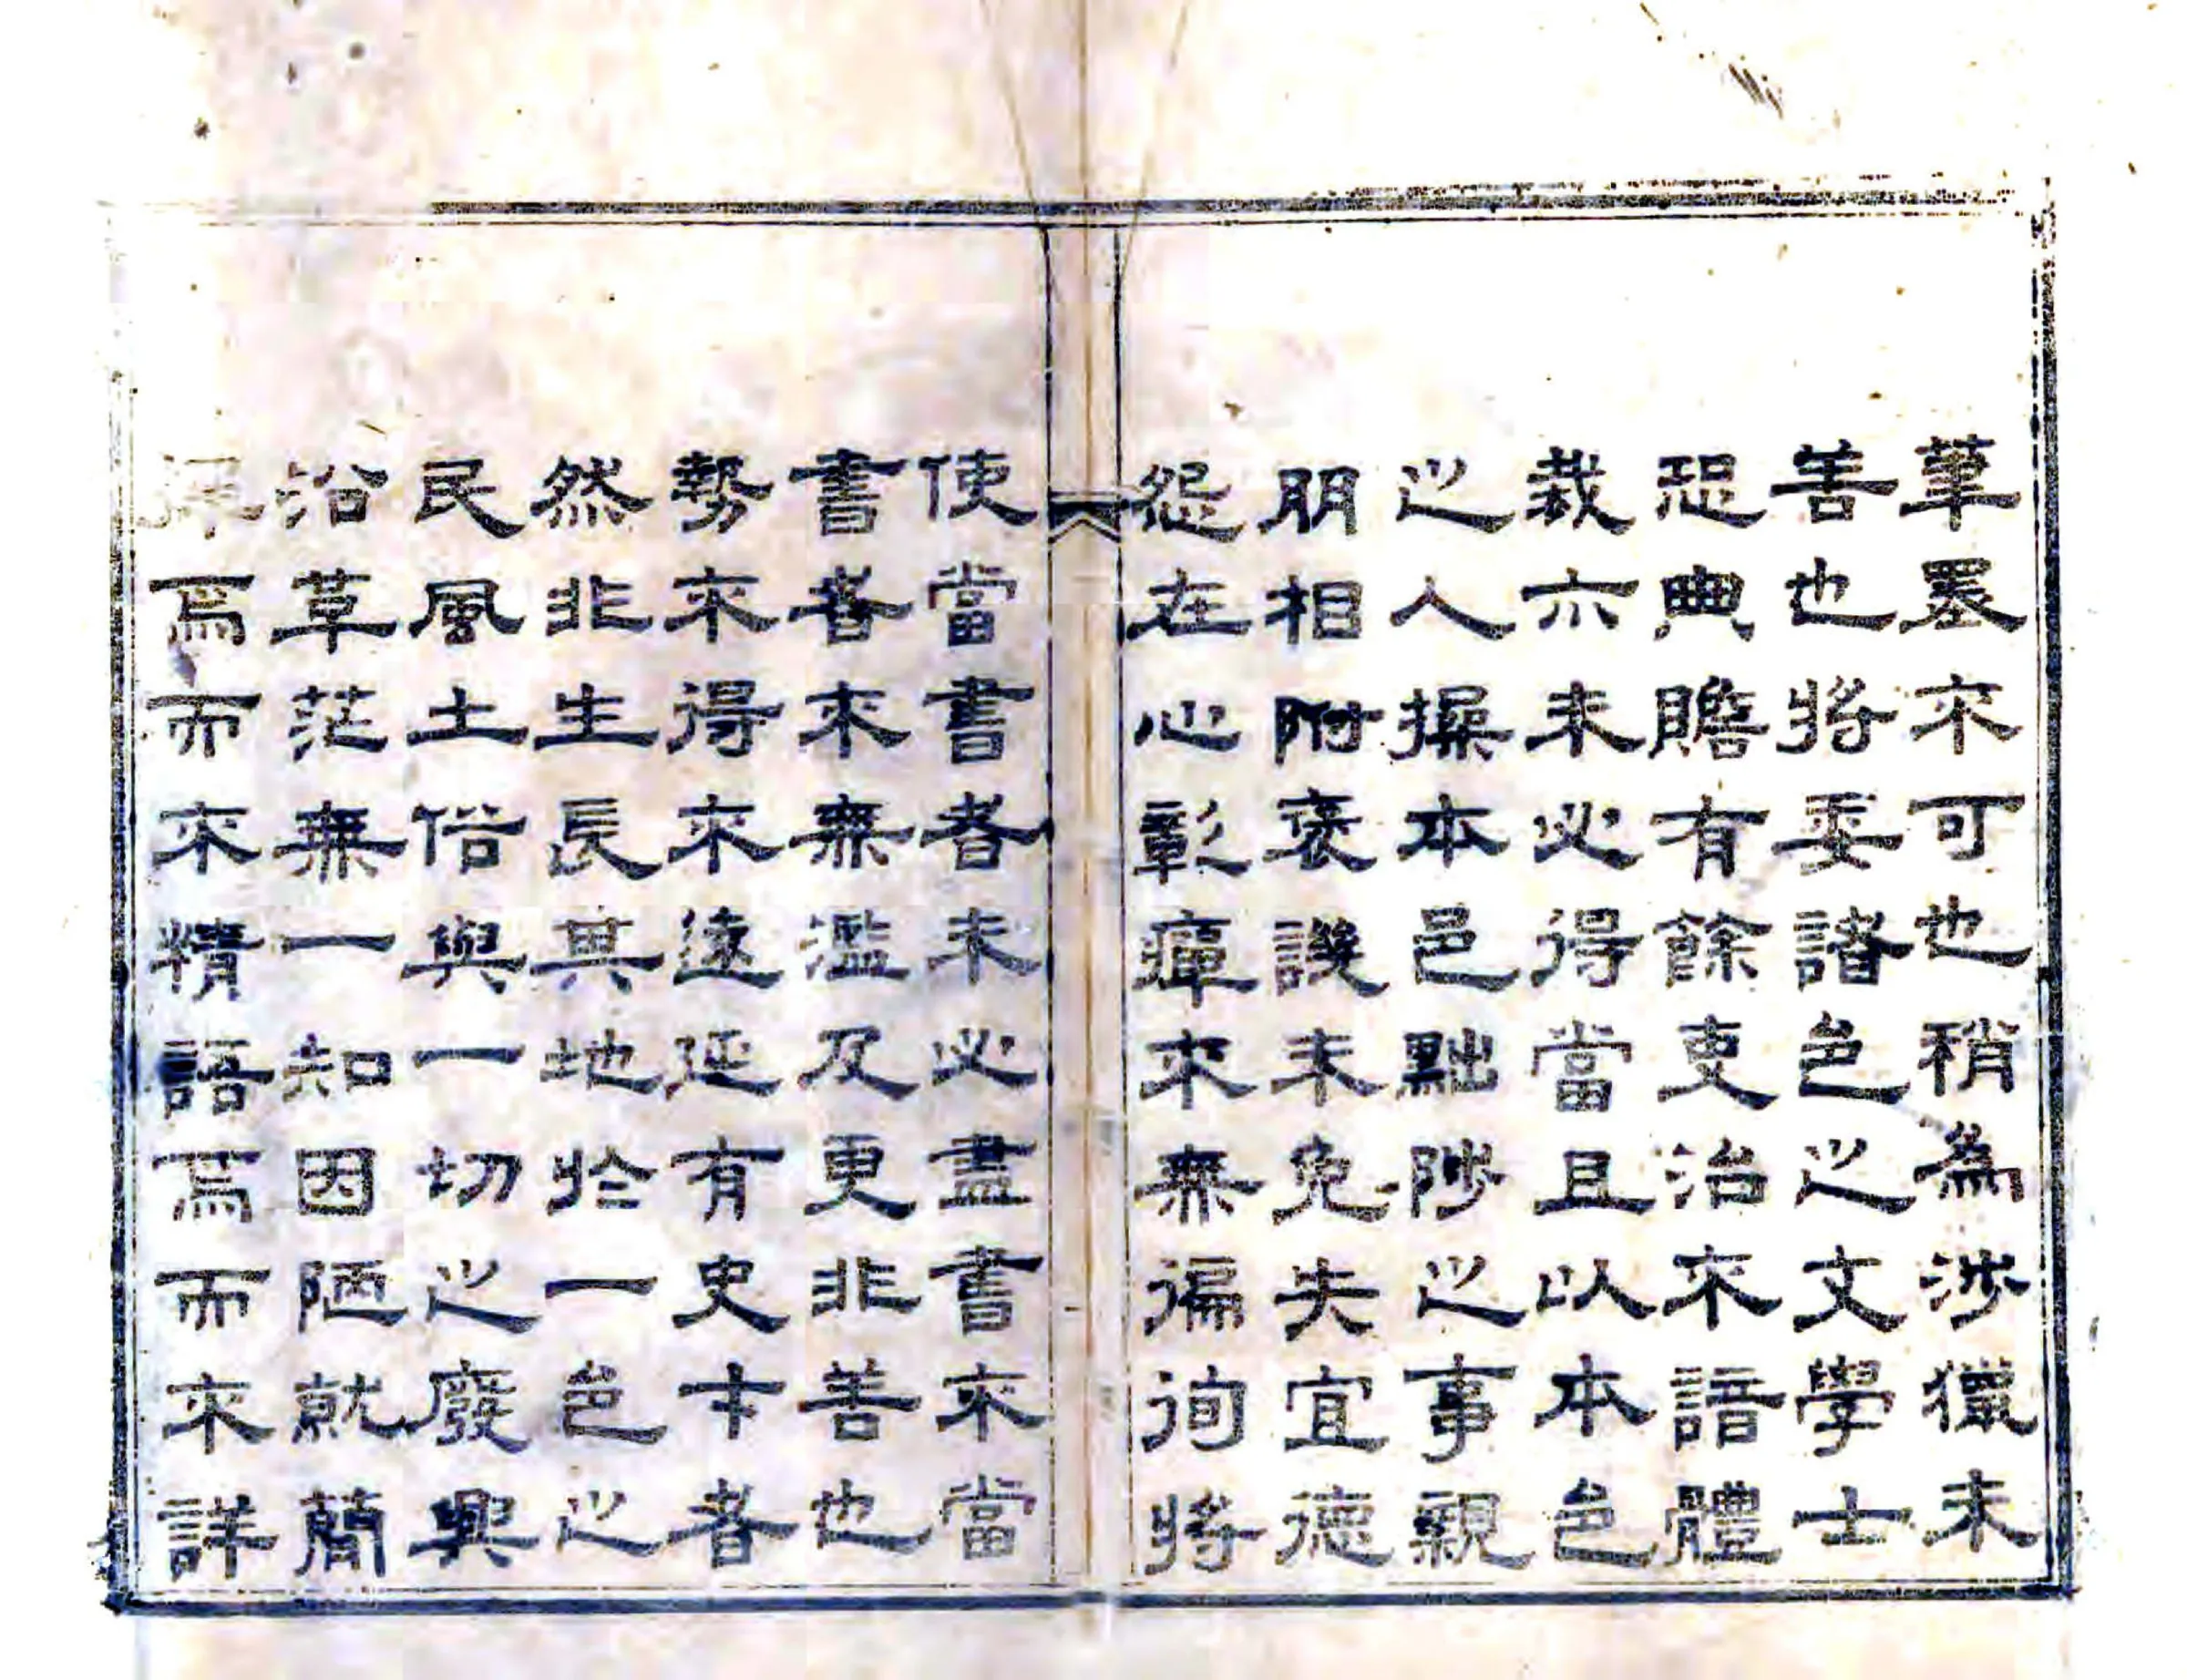 筆墨不可也稍為涉獵未
善也將委諸邑之文學士
恐典贍有餘吏治不諳體
裁亦未必得當且以本邑
之人操本邑黜陟之事親
朋相附褒譏未免失宜德
怨在心彰癉不無徧徇將
使當書者未必盡書不當
書者不無濫及更非善也
勢不得不遠延有史才者
然非生長其地於一邑之
民風土俗與一切之廢興
沿革茫無一知因陋就簡
擇焉而不精語焉而不詳